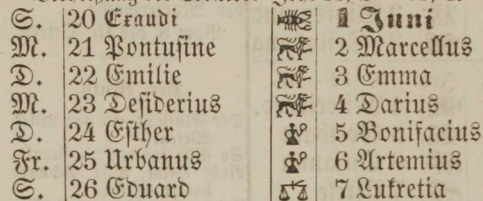 S. 20 Exaudi 1 Juni
M. 21 Pontusine 2 Marcellus
D. 22 Emilie 3 Emma
M. 23 Desiderius 4 Darius
D. 24 Esther 5 Bonifacius
Fr. 25 Urbanus 6 Artemius
S. 26 Eduard 7 Lukretia